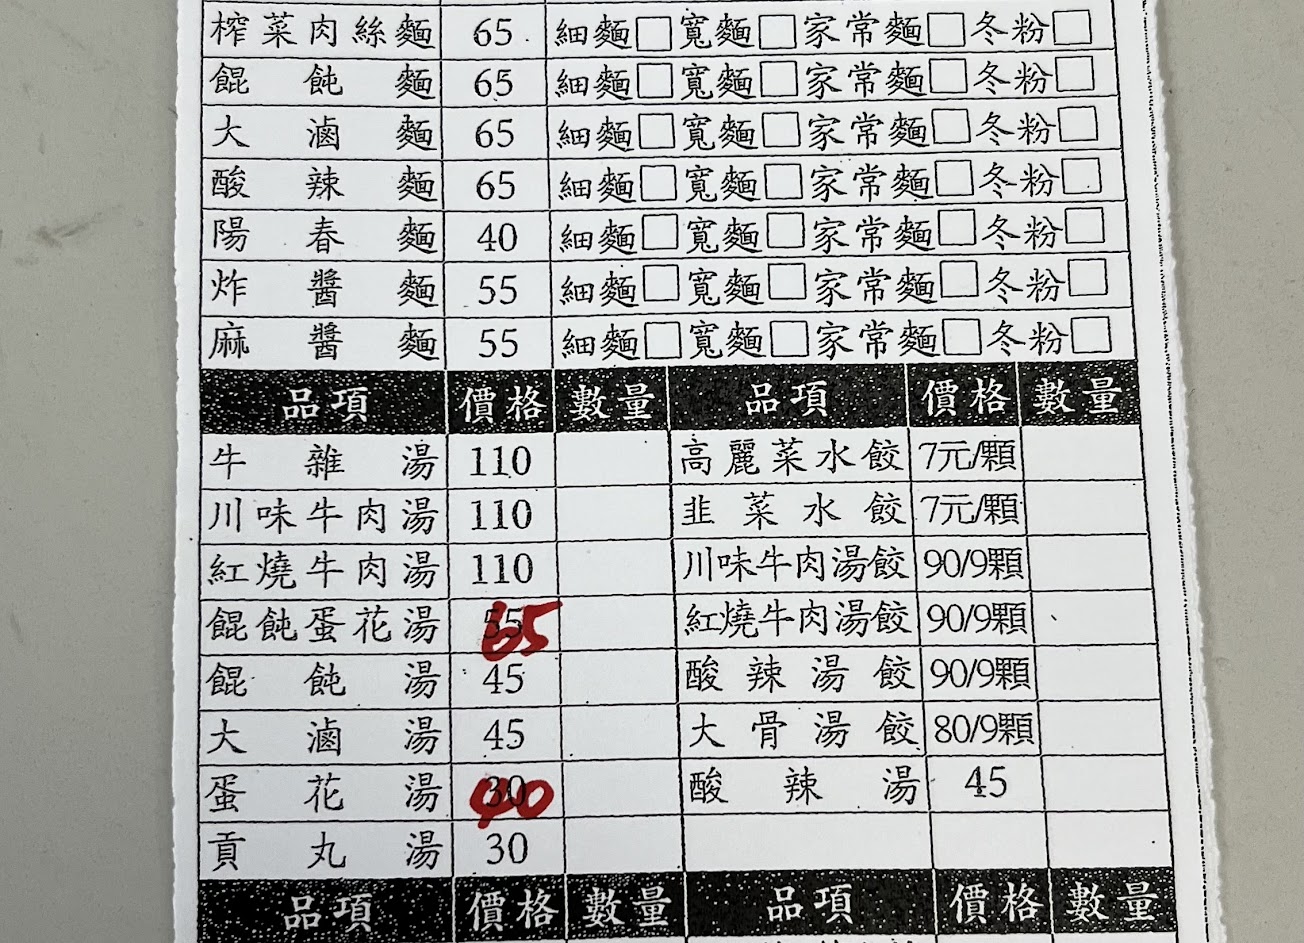 榨菜肉絲麵 65 細麵□寬麵□家常麵□冬粉□
餛飩麵 65 細麵□寬麵□家常麵□冬粉□
大滷麵 65 細麵□寬麵□家常麵□冬粉□
酸辣麵 65 細麵□寬麵□家常麵□冬粉□
陽春麵 40 細麵□寬麵□家常麵□冬粉□
炸醬麵 55 細麵□寬麵□家常麵□冬粉□
麻醬麵 55 細麵□寬麵□家常麵□冬粉□
品項 價格 數量 品項 價格 數量
牛雜湯 110 高麗菜水餃 7元/顆
川味牛肉湯 110 韭菜水餃 7元/顆
紅燒牛肉湯 110 川味牛肉湯餃 90/9顆
餛飩蛋花湯 65 紅燒牛肉湯餃 90/9顆
餛飩湯 45 酸辣湯餃 90/9顆
大滷湯 45 大骨湯餃 80/9顆
蛋花湯 40 酸辣湯 45
貢丸湯 30
品項 價格 數量 品項 價格 數量